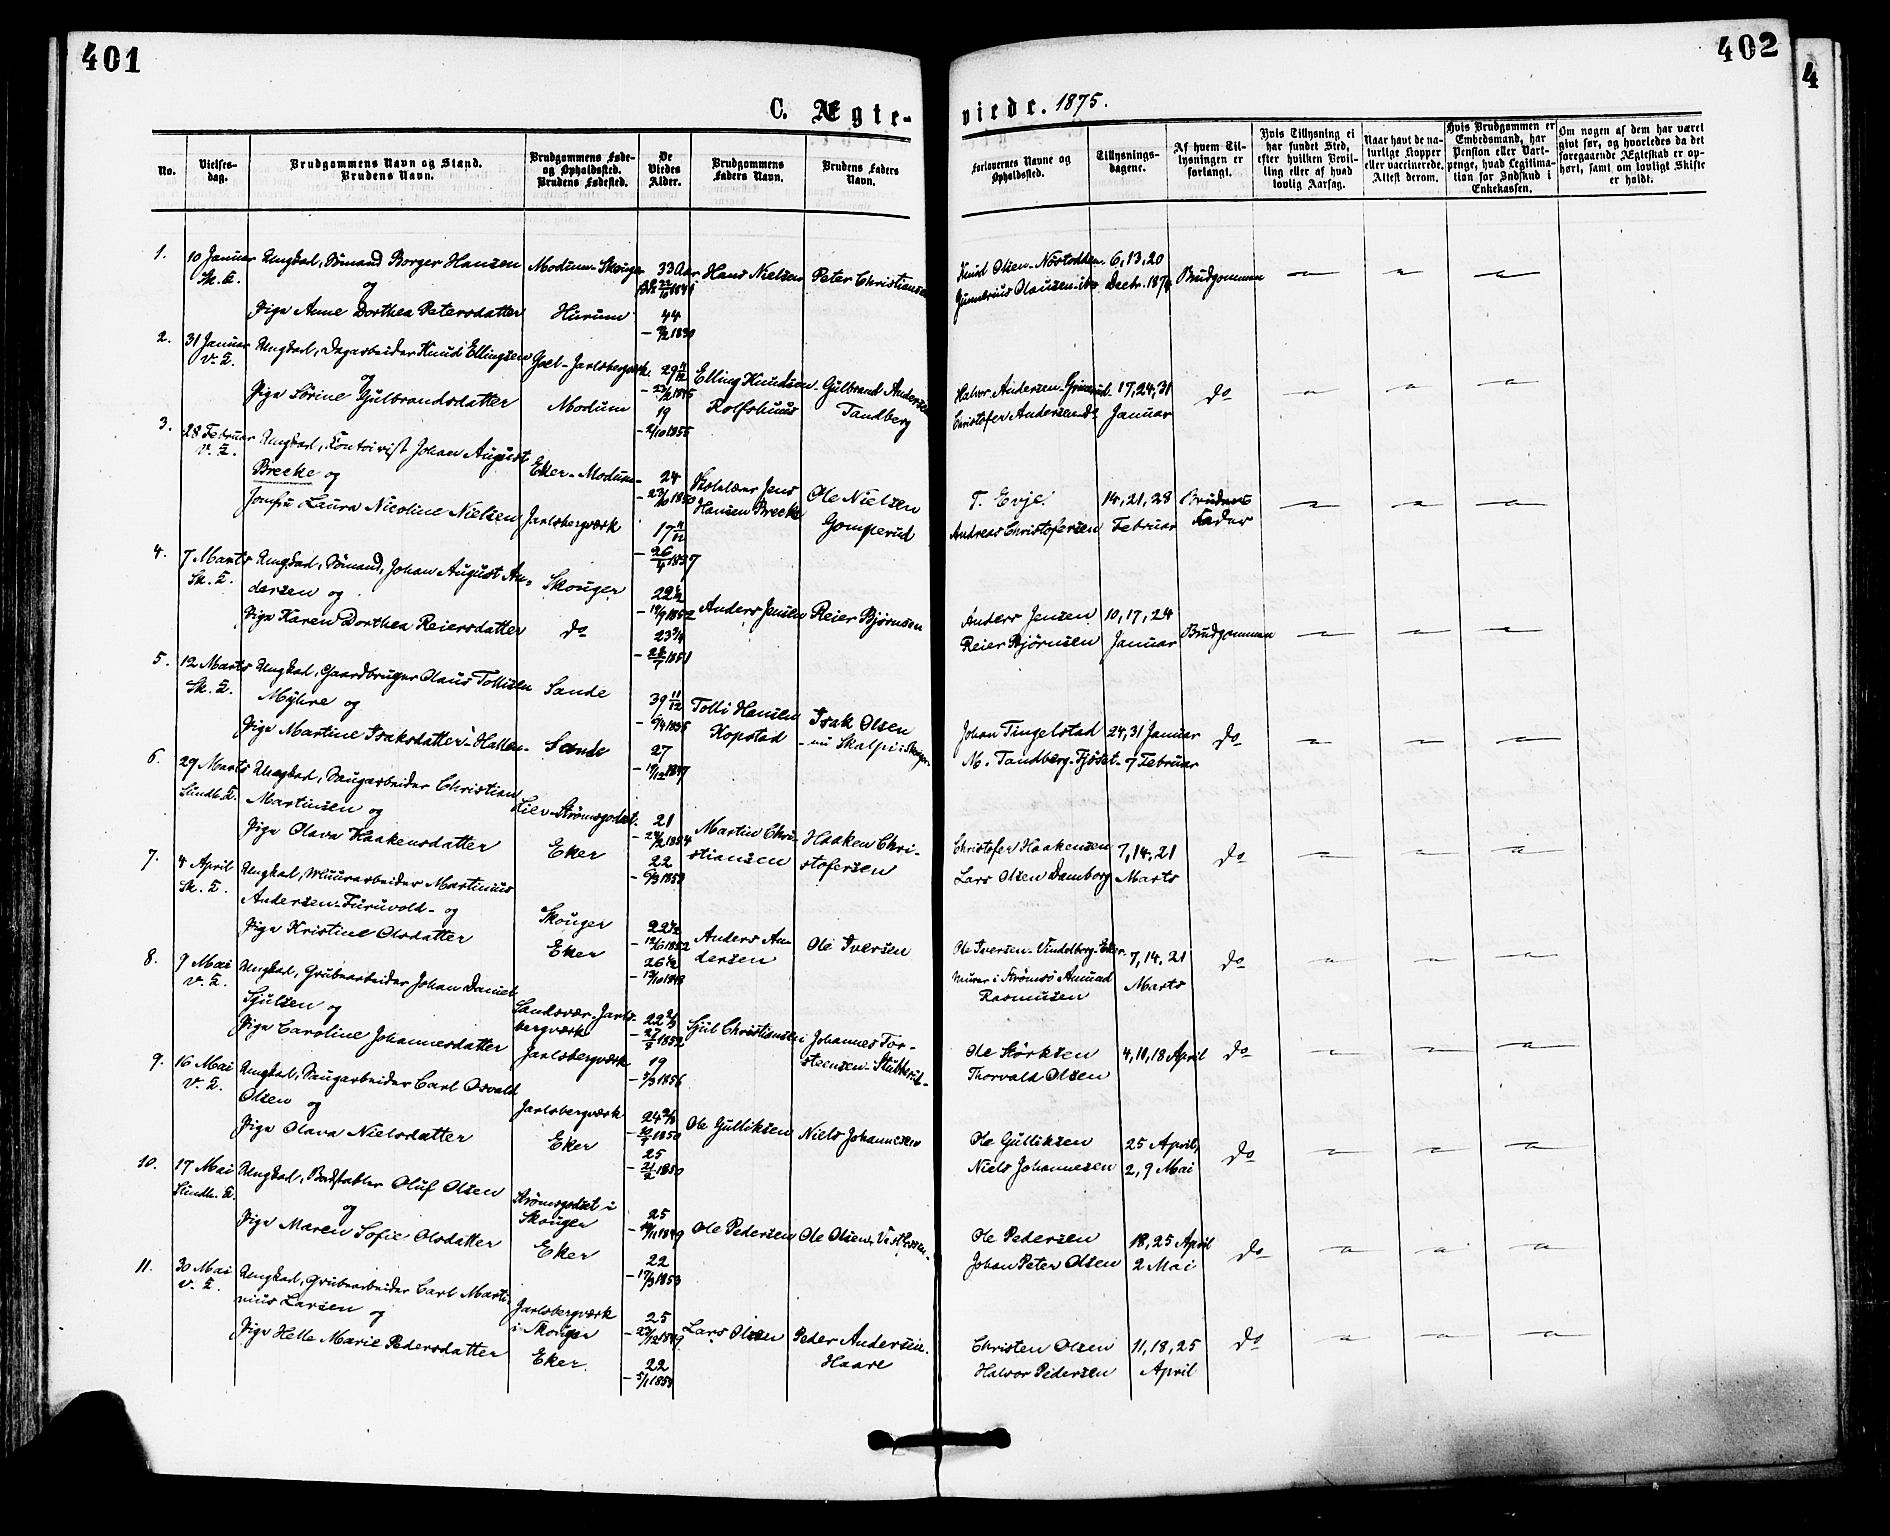 401
402
4
C. Ægte-
viede. 1875.
No.
Vielses-
dag.
Brudgommens Navn og Stand.
Brudens Navn.
Brudgommens Føde-
og Opholdssted.
Brudens Fødested.
De
Viedes
Alder.
Brudgommens
Faders Navn.
Brudens Faders
Navn.
Forlovernes Navne og
Opholdssted.
Tillysnings-
dagene.
Af hvem Til-
lysningen er
forlangt.
Hvis Tillysning ei
har fundet Sted,
efter hvilken Bevil-
ling eller af hvad
lovlig Aarsag.
Naar havt de na-
turlige Kopper
eller vaccinerede,
Attest derom.
Hvis Brudgommen er
Embedsmand, har
Pension eller Vart-
penge, hvad Legitima-
tion for Indskud i
Enkekassen.
Om nogen af dem har været
givt før, og hvorledes da det
foregaaende Ægteskab er op-
hørt, samt om lovligt Skifte
er holdt.
1.
10 Januar
Sk. K.
Ungkarl, Sømand Borger Hansen
og
Pige Anne Dorthea Petersdatter
Modum - Skouger
Hurum
33 Aar
44
Hans Nielsen
Peter Christiansen
Knud Olsen
Gunnerius Olausen
6, 13, 20
Decbr. 1874
Brudgommen
2.
31 Januar
V. K.
Ungkarl, Dagarbeider Knud Ellingsen
og
Pige Sørine Gulbrandsdatter
Goel - Jarlsbergværk
Modum
29 11/12
19
2/10 1855
Elling Knudsen
Rolfshuus
Gulbrand Andersen
Tandberg
Halvor Andersen
Christofer Andersen do
17, 24, 31
Januar
do
3.
28 Februar
V. K.
Ungkarl, Kontorist Johan August
Brecke og
Jomfru Laura Nicoline Nielsen
Eker - Modum
Jarlsbergværk
24
23/10 1850
17 11/12
Jens
Hansen Brecke
Ole Nielsen
Gomperud
T. Evje
Andreas Christofersen
14, 21, 28
Februar
Brudens
Fader
4.
7 Marts
Sk. K.
Ungkarl, Sømand, Johan August An-
dersen og
Pige Karen Dorthea Reiersdatter
Skouger
do
22 1/2
19/9 1852
1851
Anders Jensen
Reier Bjørnsen
Anders Jensen
Reier Bjørnsen
10, 17, 24
Januar
Brudgommen
5.
12 Marts
Sk. K.
Ungkarl, Gaardbruger Olaus Tollisen
Myhre og
Pige Martine Isaksdatter
Sande
Sande
39 11/12
27
Tolli Hansen
Kopstad
Isak Olsen
nu
Johan Tingelstad
M. Tandberg
24, 31 Januar
7 Februar
do
6.
29 Marts
Ungkarl, Saugarbeider Christian
Martinsen og
Pige Olava Haakensdatter
Lier - Strømsgodset
Eker
21
22
Martin Chri-
stiansen
Haaken Chri-
stofersen
Christofer Haakensen
Lars Olsen Damborg
7, 14, 21
Marts
do
7.
4 April
Sk. K.
Ungkarl, Muurarbeider Martinius
Andersen Furuvold og
Pige Kristine Olsdatter
Skouger
Eker
22 1/2
26 1/2
Anders An-
dersen
Ole Iversen
Ole Iversen
Murer i Strømsø Amund
Rasmusen
7, 14, 21
Marts
do
8.
9 Mai
V. K.
Ungkarl, Grubearbeider Johan Daniel
Sjulsen og
Pige Caroline Johannesdatter
Sandsvær, Jarls-
bergværk
Jarlsbergværk
22 2/3
19
Sjul Christiansen
Johannes Tor-
steensen
Ole Størksen
Thorvald Olsen
4, 11, 18 April
do
9.
16 Mai
V. K.
Ungkarl, Saugarbeider Carl Osvald
Olsen og
Pige Olava Nielsdatter
Jarlsbergværk
Eker
25
Ole Gulliksen
Niels Johannesen
Ole Gulliksen
Niels Johannesen
25 April,
2, 9 Mai
do
10.
17 Mai
Ungkarl, Bordstabler Oluf Olsen
og
Pige Maren Sofie Olsdatter
Strømsgodset i
Skouger
Eker
25
22
17/3 1853
Ole Pedersen
Ole Olsen
Ole Pedersen
Johan Peter Olsen
18, 25 April
2 Mai
do
11.
30 Mai
V. K.
Ungkarl, Grubearbeider Carl Marti-
nius Larsen og
Pige Helle Marie Pedersdatter
Jarlsbergværk
i Skouger
Eker
25
22
5/1 1853
Lars Olsen
Peder Andersen
Haare
Christen Olsen
Halvor Pedersen
11, 18, 25
April
do